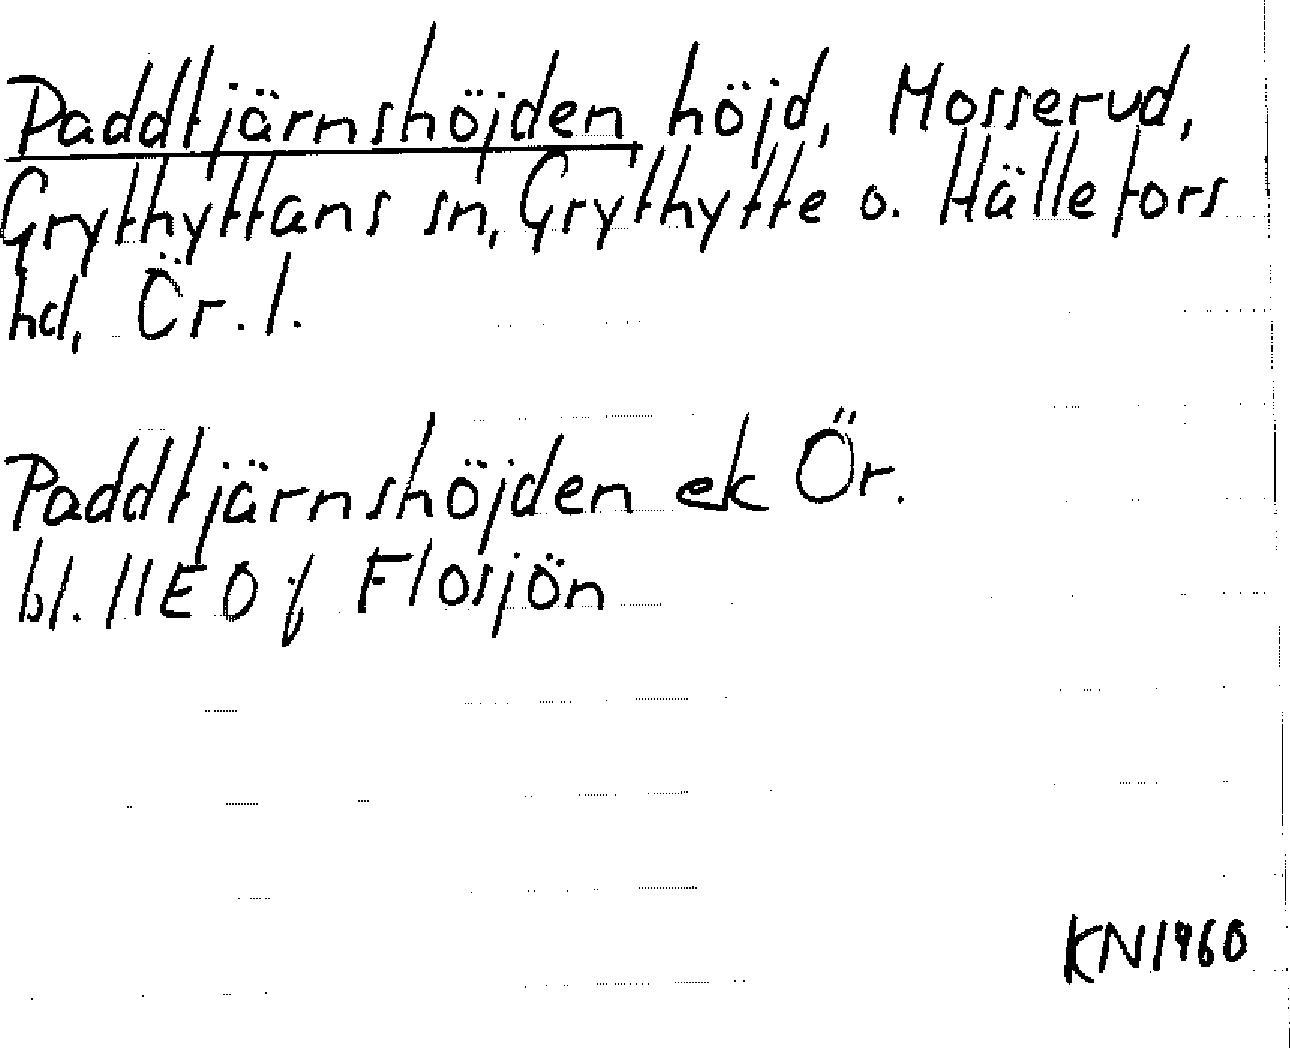 Paddtjärnshöjden höjd, Mosserud,
Grythyttans sn, Grythytte o. Hällefors
hd, Ör. l.
Paddtjärnshöjden ek Ör.
bl. 11E 0 j Flosjön
KN1960